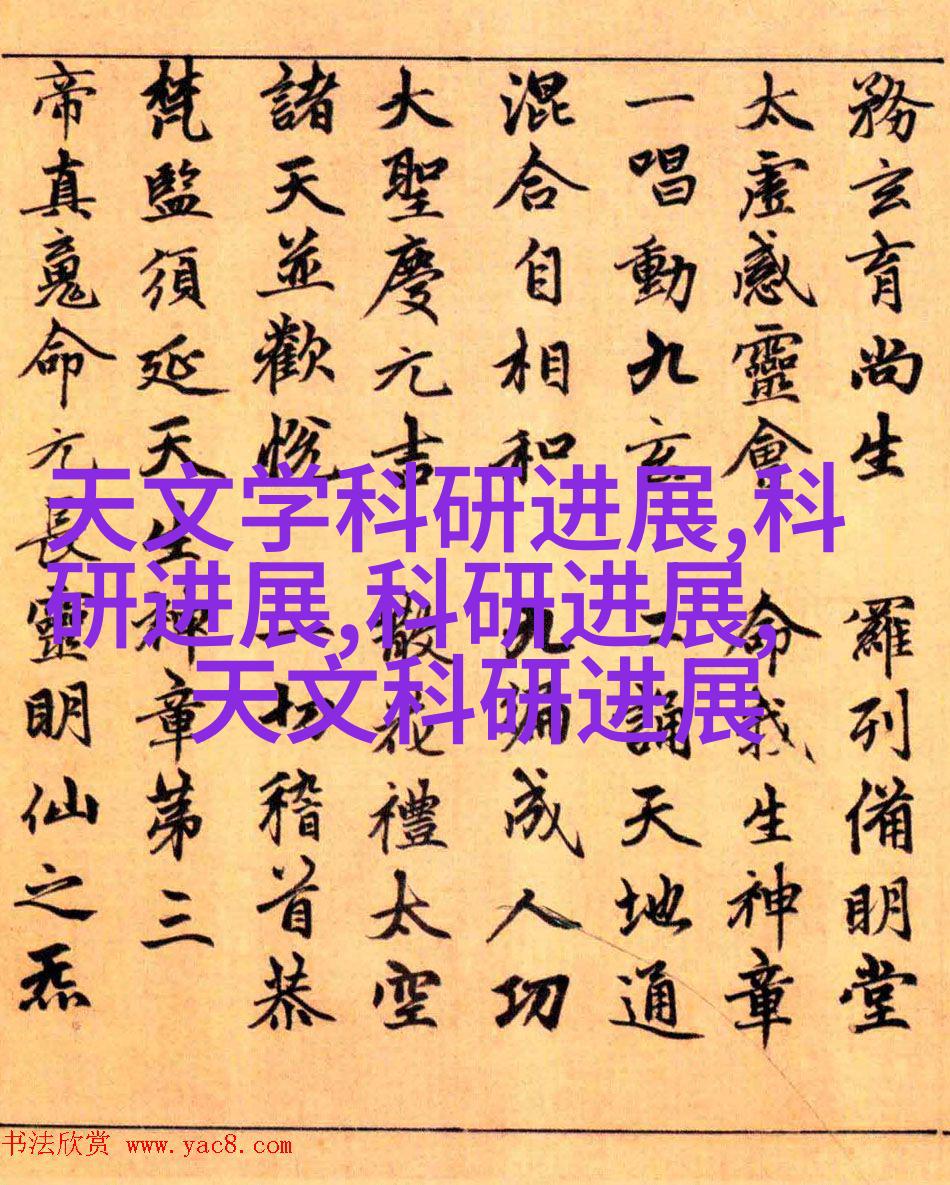 務玄育尚生 羅列備明堂
太虛感靈會 命我生神章
一唱動九玄 二誦天地通
混合自相和 九遍成人功
大聖慶元吉 散花禮太空
諸天並歡悅 一切稽首恭
梵監須延天生神章第三
帝真命元長靈明仙之炁
天文学科研进展,科
研进展,科研进展,
天文科研进展
书法欣赏 www.yac8.com